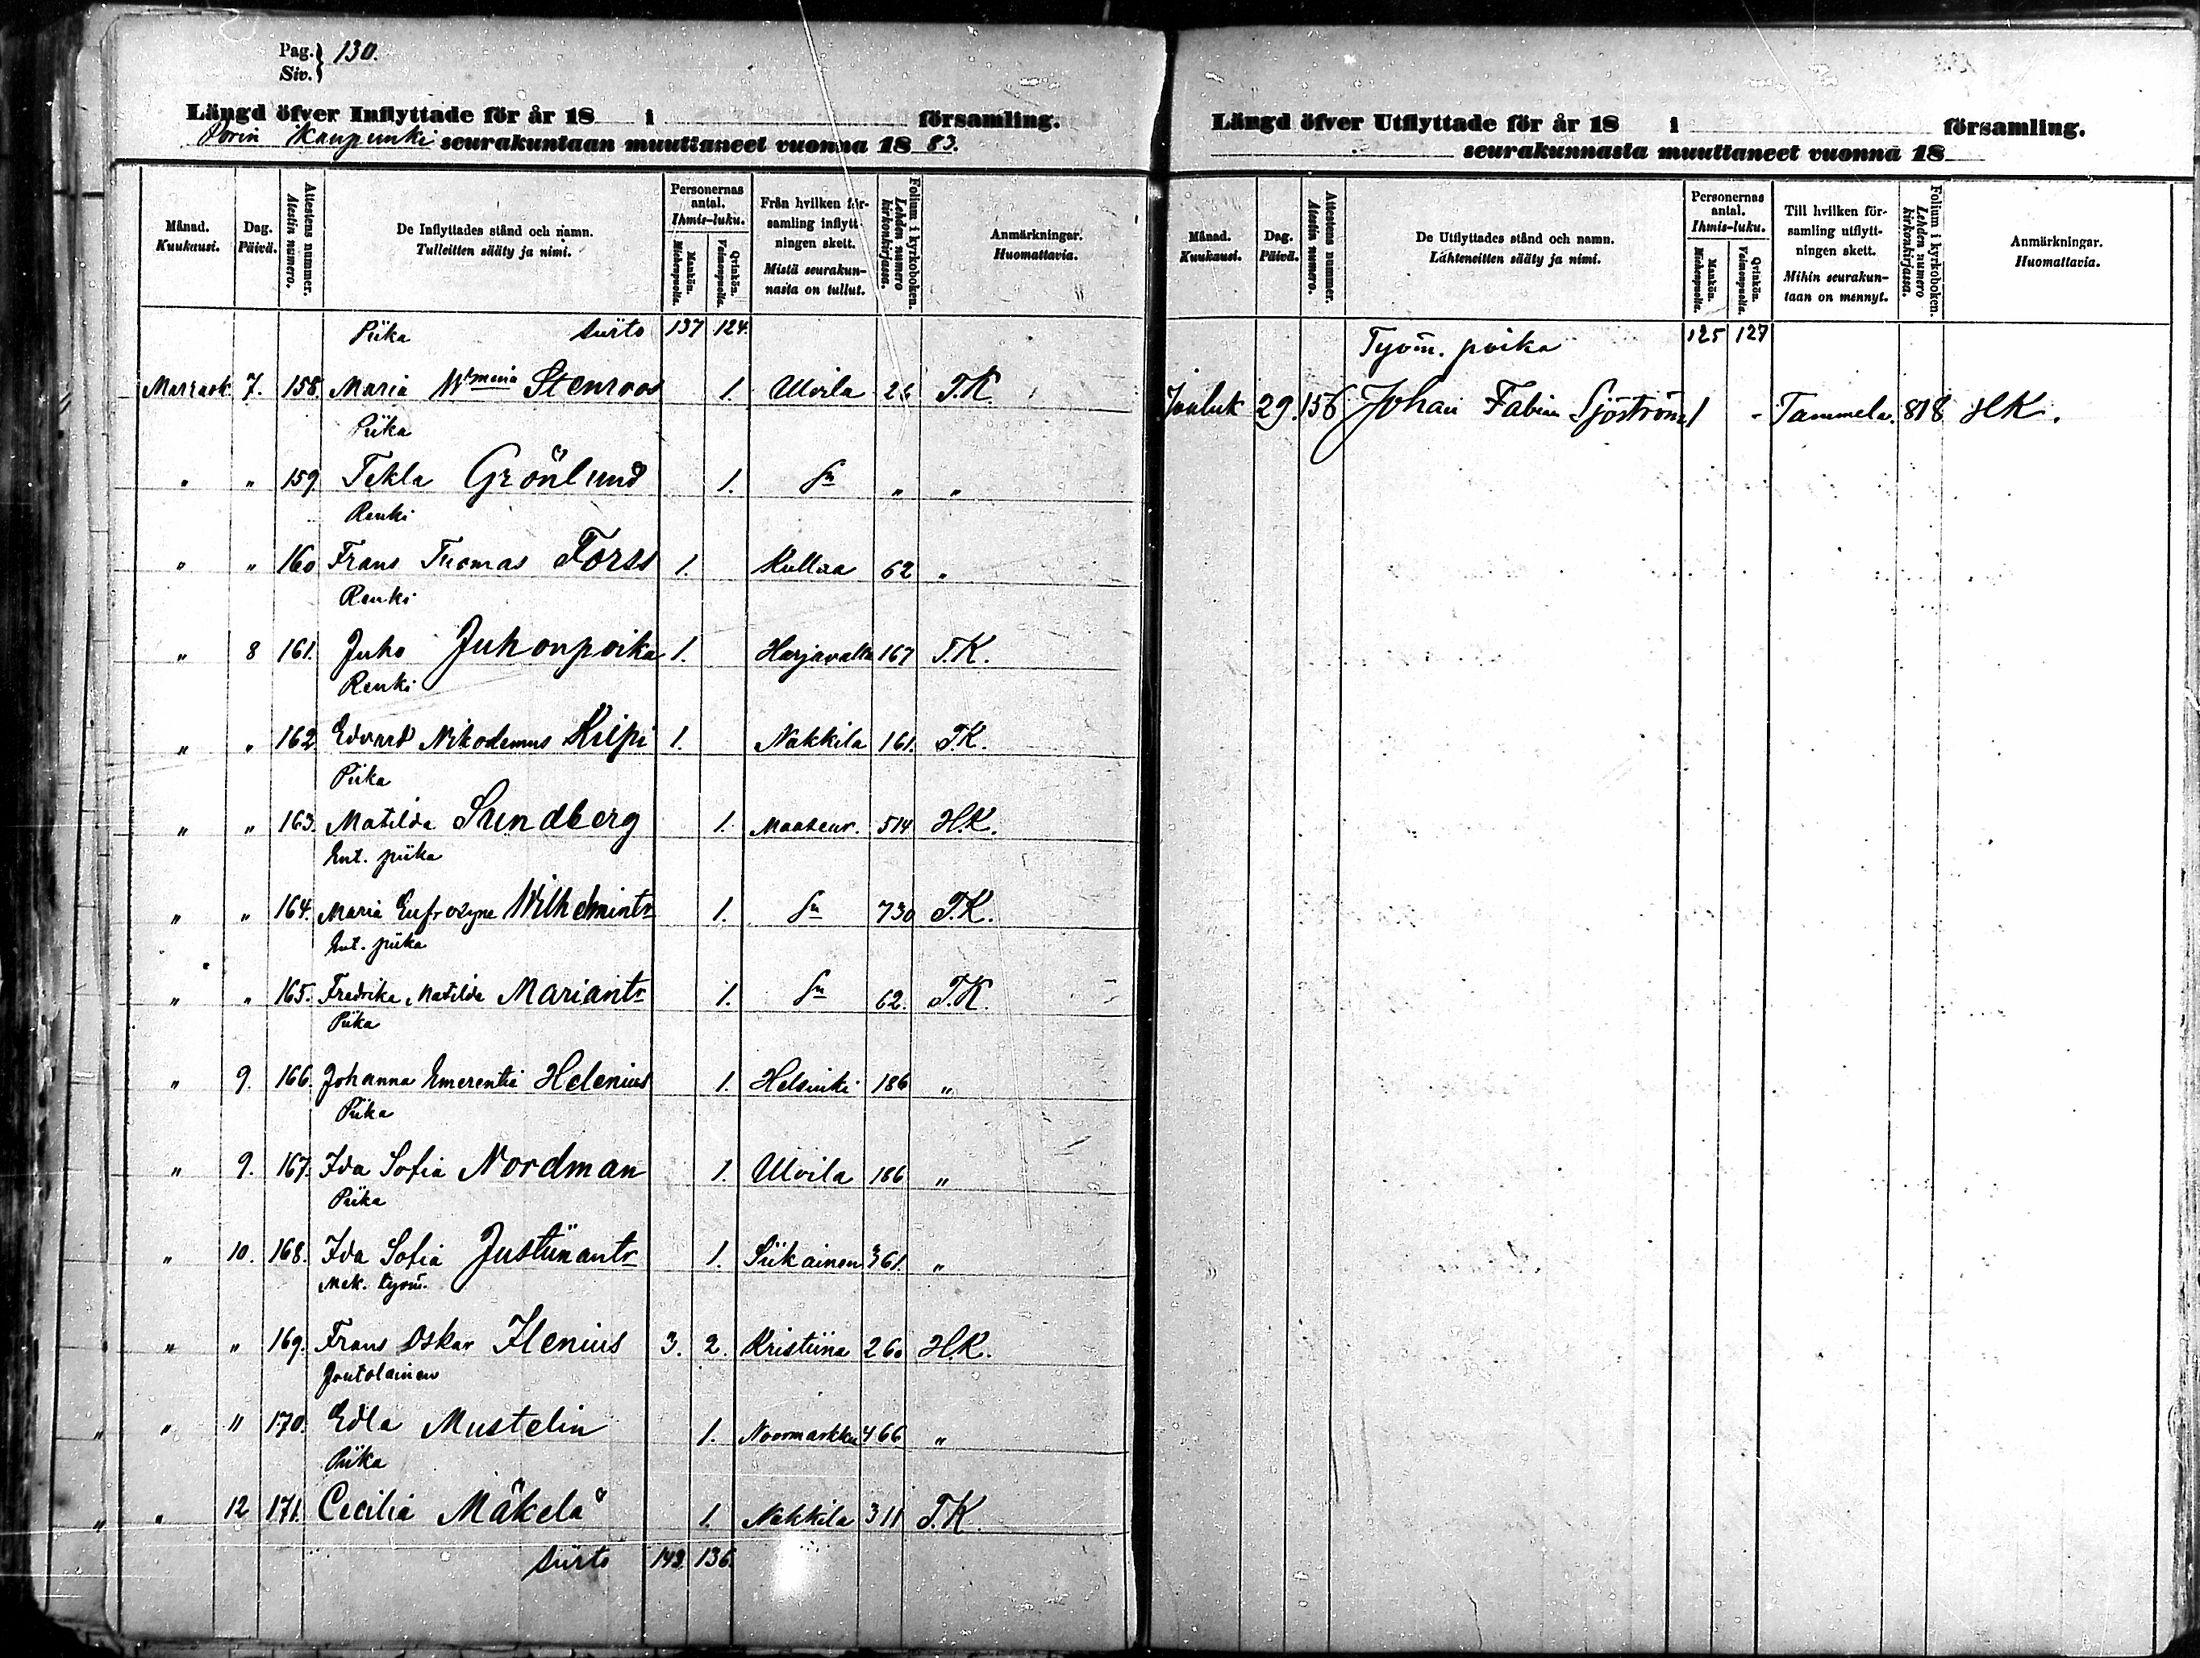 Pag. Siv. } 130.
Längd öfver Inflyttade för år 18 i församling.
Porin Kaupunki seurakuntaan muuttaneet vuonna 18 83.
Månad. Kuukausi. | Dag. Päivä. | Attestens nummer. Atestin numero. | De Inflyttades stånd och namn. Tulleitten sääty ja nimi. | Personernas antal. Ihmis-luku. Mankön. Miehenpuolia. | Qvinkön. Vaimonpuolia. | Från hvilken församling inflyttningen skett. Mistä seurakunnasta on tullut. | Folium i kyrkoboken. Lehden numero kirkonkirjassa. | Anmärkningar. Huomattavia.
Piika siirto 137 124.
Marrask. 7. 158. Maria Wmina Stenroos 1. Ulvila 26 T.K.
Piika
" " 159 Tekla Grönlund 1. Sn " "
Renki
" " 160 Frans Tuomas Forss 1. Kullaa 62 "
Renki
" 8 161. Juho Juhonpoika 1. Harjavalta 167 T.K.
Renki
" " 162 Edvard Nikodemus Kilpi 1. Nakkila 161. T.K.
Piika
" " 163. Matilda Sundberg 1. Maaseur. 514 H.K.
Ent. piika
" " 164. Maria Eufrosyne Wilhelmintr 1. Sn 730 T.K.
Ent. piika
" " 165. Fredrika Matilda Mariantr 1. Sn 62. T.K.
Piika
" 9. 166. Johanna Emerentia Helenius 1. Helsinki 186 "
Piika
" 9. 167. Ida Sofia Nordman 1. Ulvila 186 "
Piika
" 10. 168. Ida Sofia Justiinantr 1. Siikainen 361. "
Mek. työm.
" " 169. Frans Oskar Ilenius 3. 2. Kristiina 260 H.K.
Joutolainen
" 11 170. Edla Mustelin 1. Noormarkku 466 "
Piika
" 12 171. Cecilia Mäkelä 1. Nakkila 311 T.K.
siirto 143. 136.
Längd öfver Utflyttade för år 18 i församling.
seurakunnasta muuttaneet vuonna 18
Månad. Kuukausi. | Dag. Päivä. | Attestens nummer. Atestin numero. | De Utflyttades stånd och namn. Lähteneitten sääty ja nimi. | Personernas antal. Ihmis-luku. Mankön. Miehenpuolia. | Qvinkön. Vaimonpuolia. | Till hvilken församling utflyttningen skett. Mihin seurakuntaan on mennyt. | Folium i kyrkoboken. Lehden numero kirkonkirjassa. | Anmärkningar. Huomattavia.
Työm. poika 125 127
Jouluk 29. 156 Johan Fabian Sjöström 1 - Tammela. 818 HK.